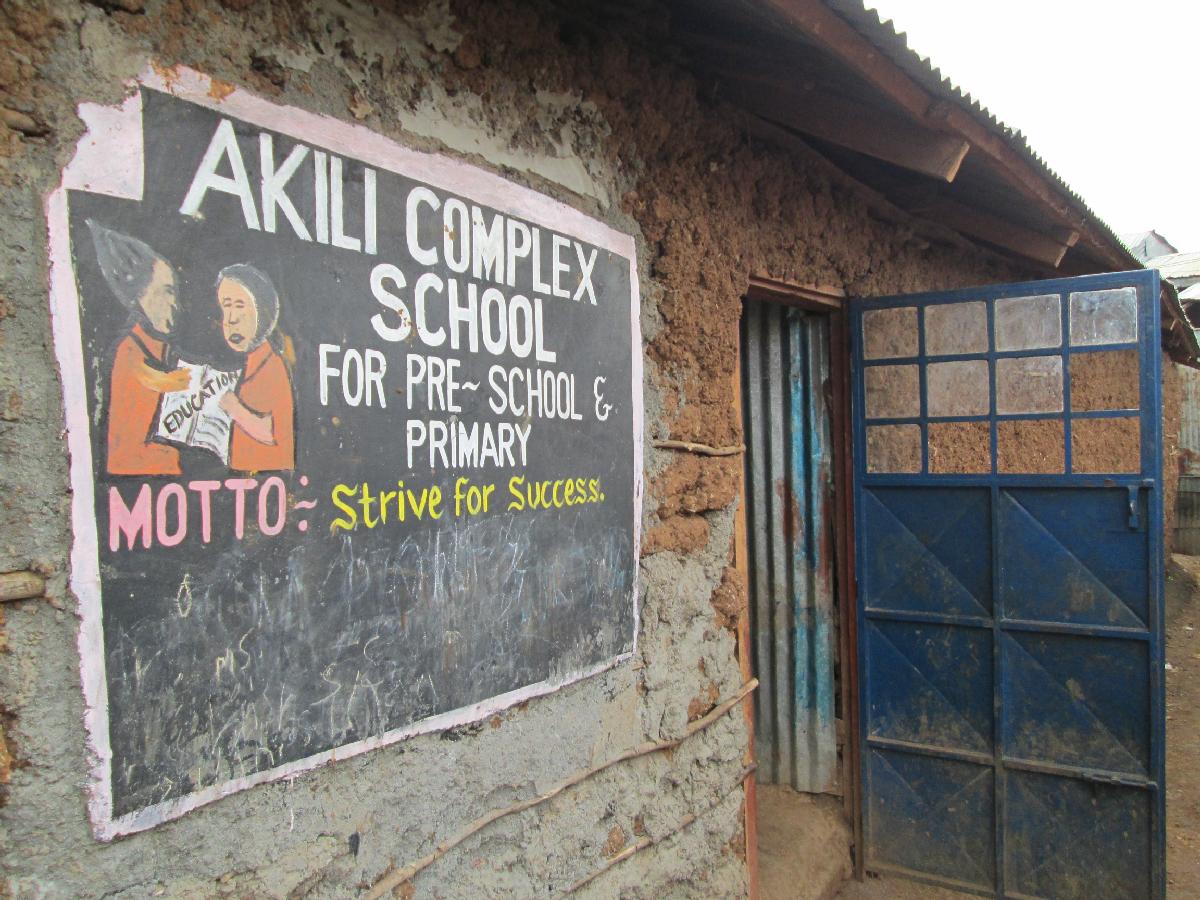 AKILI COMPLEX
SCHOOL
FOR PRE~SCHOOL &
PRIMARY
EDUCATION
MOTTO:~ Strive for Success.